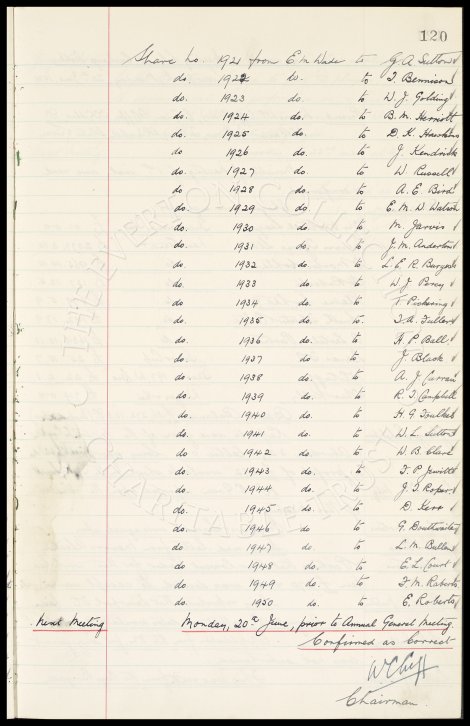 120
Share No. 1921 from E M Wade to G A Sutton
do. 1922 do. to T. Bennison
do. 1923 do. to W. J. Golding
do. 1924 do. to B. M. Herriott
do. 1925 do. to D. K. Hawkins
do 1926 do. to J. Kendrick
do. 1927 do. to W. Russell
do. 1928 do. to A. E. Bird
do. 1929 do. to E. M. D Watson
do. 1930 do. to M. Jarvis
do. 1931 do. to J. M. Anderton
do. 1932 do. to L. E. R. Burgess
do 1933 do. to W. J Percy
do 1934 do. to T. Pickering
do. 1935 do. to. J. A. Fuller
do. 1936 do. to H. P. Ball
do. 1937 do. to J. Black
do. 1938 do. to A. J Curran
do. 1939 do. to R. T. Campbell
do. 1940 do. to H. G. Foulkes
do. 1941 do. to W. L. Sutton
do 1942 do. to W. B. Clare
do. 1943 do. to F. P. Jewitt
do. 1944 do. to J. T. Roper
do. 1945 do. to D. Kerr
do. 1946 do to G. Douthwaite
do 1947 do. to L. M. Bullen
do 1948 do. to E. L. Court
do 1949 do. to F. M. Roberts
do 1950 do. to E. Roberts
Next Meeting Monday, 20th June, prior to Annual General Meeting.
Confirmed as Correct
W C Cuff
Chairman.
THE EVERTON COLLECTION
CHARITABLE TRUST